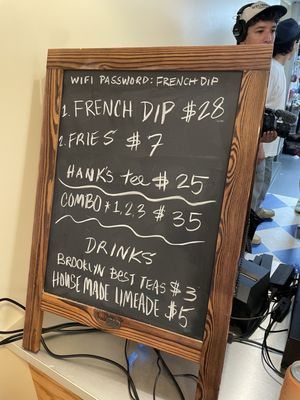 WIFI PASSWORD: FRENCH DIP
1. FRENCH DIP $28
1. FRIES $7
HANK'S Tee $25
COMBO *1,2,3 $35
DRINKS
BROOKLYN BEST TEAS $3
HOUSE MADE LIMEADE $5